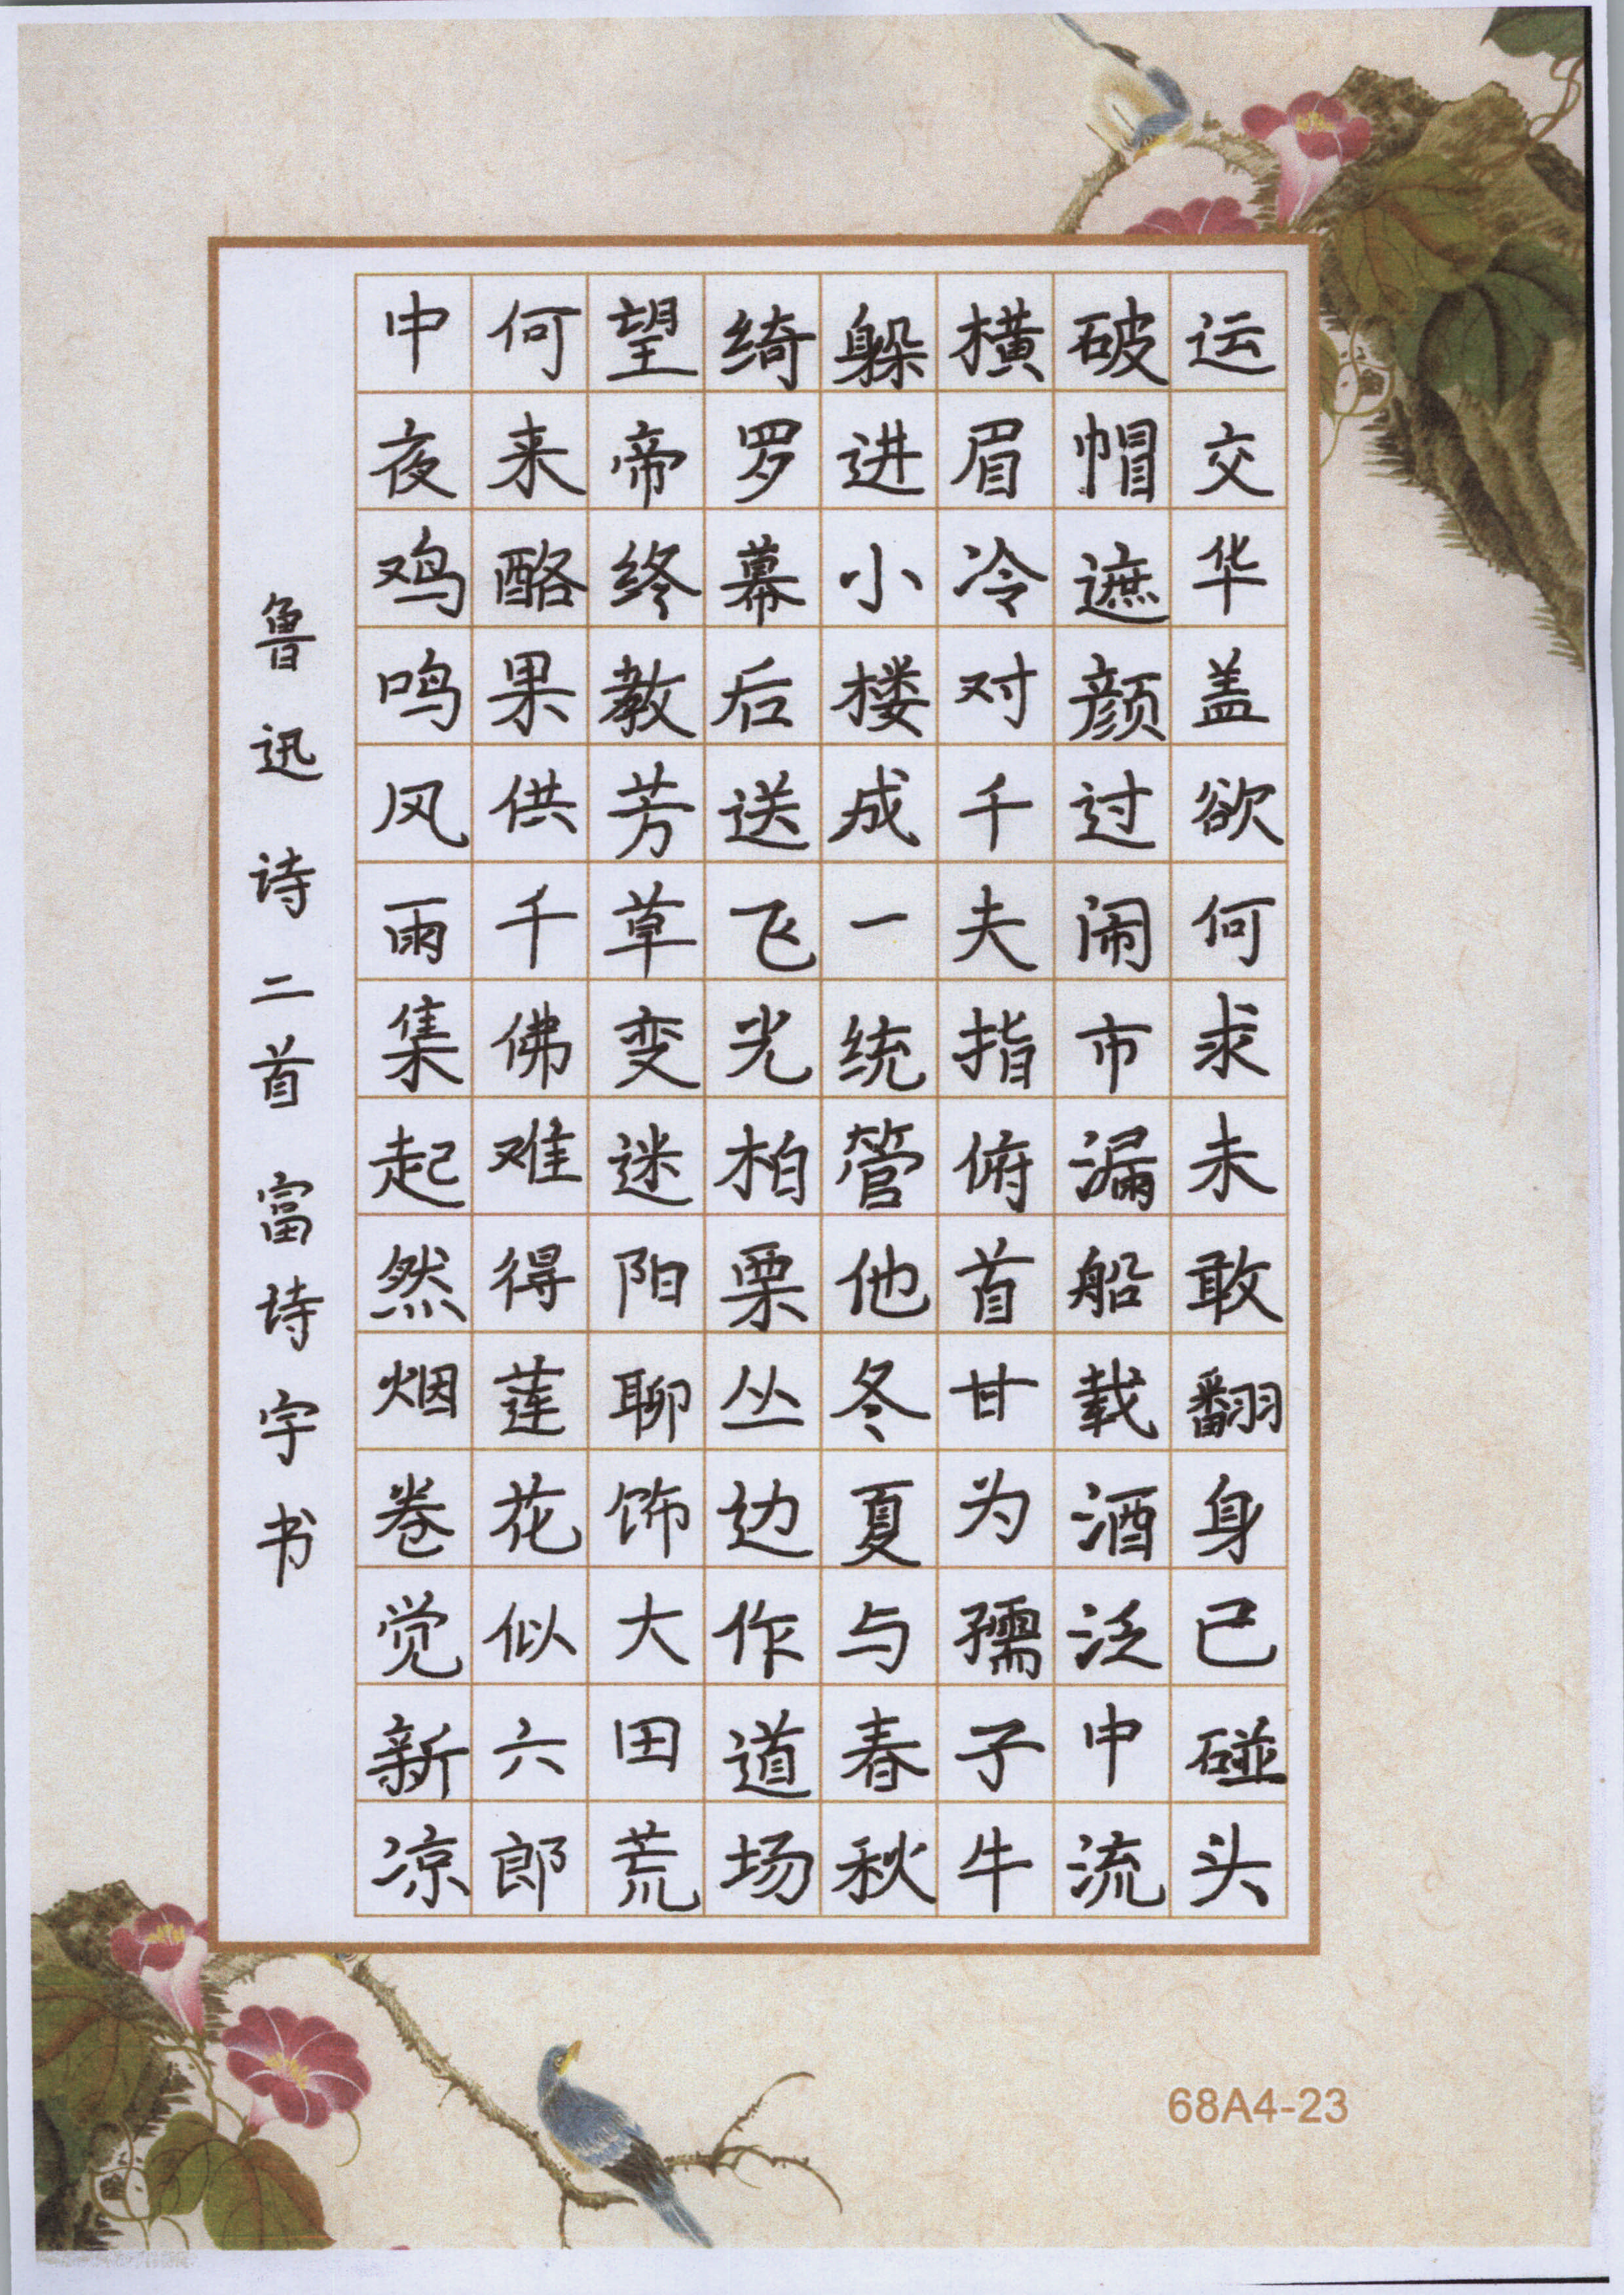 运交华盖欲何求未敢翻身已碰头
破帽遮颜过闹市漏船载酒泛中流
横眉冷对千夫指俯首甘为孺子牛
躲进小楼成一统管他冬夏与春秋
绮罗幕后送飞光柏栗丛边作道场
望帝终教芳草变迷阳聊饰大田荒
何来酪果供千佛难得莲花似六郎
中夜鸡鸣风雨集起然烟卷觉新凉
鲁迅诗二首富诗宇书
68A4-23